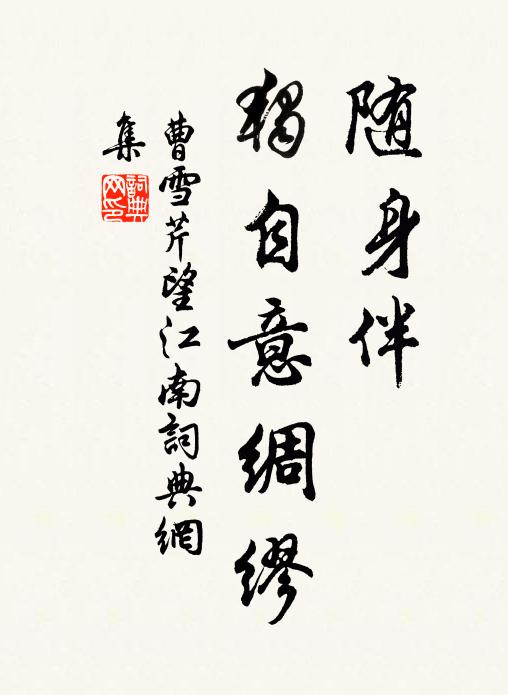 随身伴
独自意绸缪
曹雪芹望江南詞典網
集
詞典
网印